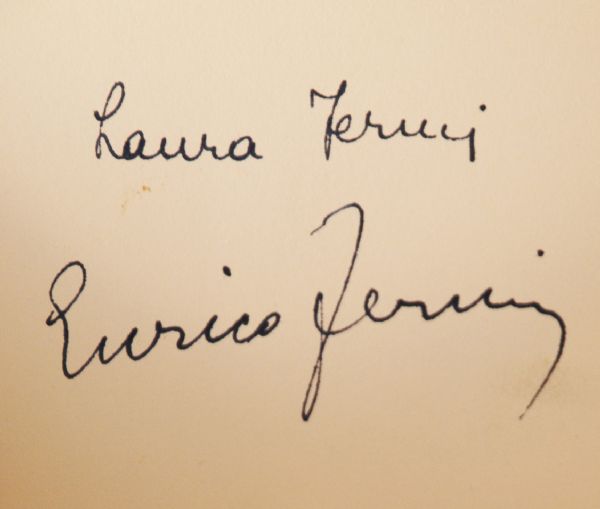 Laura Fermi
Enrico Fermi